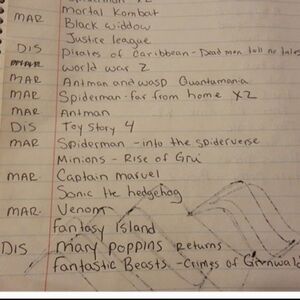 Spiderman x2
Mortal Kombat
MAR Black widow
Justice league
DIS Pirates of Caribbean - Dead men tell no tales
World war Z
MAR Antman and wasp Quantamania
MAR Spiderman - far from home X2
MAR Antman
DIS Toy Story 4
MAR Spiderman - into the spiderverse
Minions - Rise of Gru
MAR. Captain marvel
Sonic the hedgehog
MAR. Venom
fantasy Island
DIS mary poppins returns
Fantastic Beasts - Crimes of Grinwald